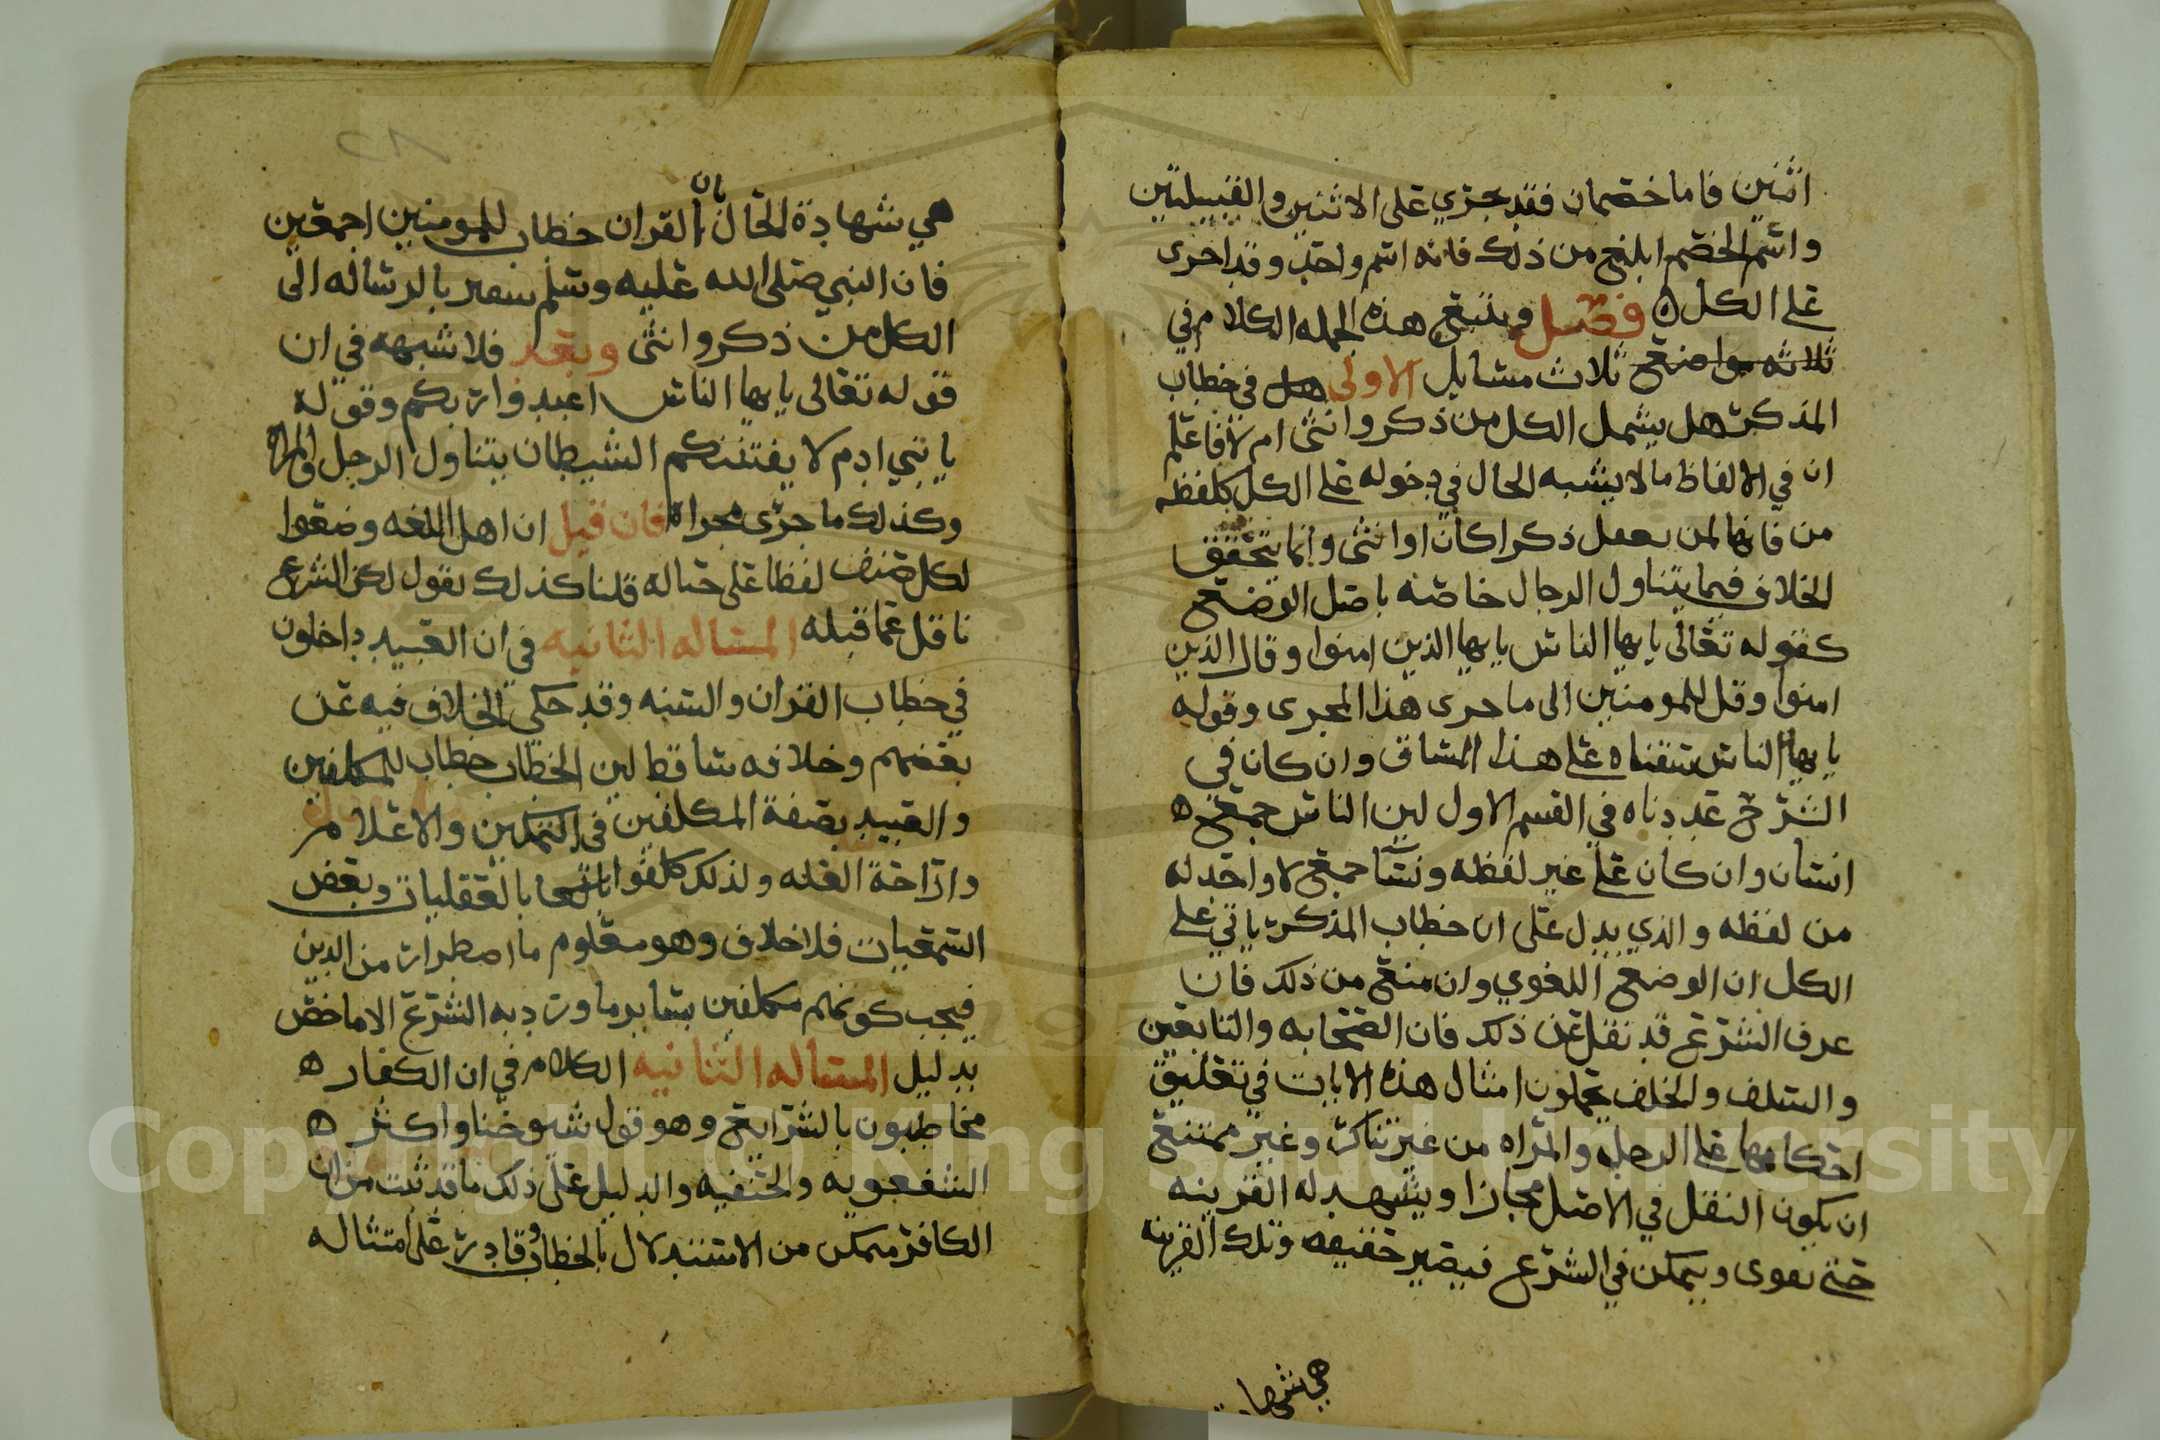 اثنين فاما خصمان فقد جرى على الاثنين والقبيلتين
واسم الخصم ابلغ من ذلك فانه اسم واحد وقد اجرى
على الكل ه فصل ويتبع هذه الجمله الكلام في
ثلاثه مواضع ثلاث مسايل الاولى هل في خطاب
المذكر هل يشمل الكل من ذكر وانثى ام لا فاعلم
ان في الالفاظ ما لا يشبه الحال في دخوله على الكل كلفظه
من فانها لمن يعقل ذكرا كان او انثى وانما يتحقق
الخلاف فيما يتناول الرجال خاصه باصل الوضع
كقوله تعالى يا يها الناس يا يها الذين امنوا وقال الذين
امنوا وقل للمومنين الى ما جرى هذا المجرى وقوله
يا يها الناس سقناه على هذا المساق وان كان في
الشرح عددناه في القسم الاول لين الناس جمع ه
انسان وان كان على غير لفظه ونسا جمع لا واحد له
من لفظه والذي يدل على ان خطاب المذكر ياتي على
الكل ان الوضع اللغوي وان منع من ذلك فان
عرف الشرع قد نقل عن ذلك فان الصحابه والتابعين
والسلف والخلف يحملون امثال هذه الايات في تعليق
احكامها على الرجل والمراه من غير تناكر وغير ممتنع
ان يكون النقل في الاصل مجازا ويشهد له القرينه
حتى يقوى ويتمكن في الشرع فيصير حقيقه وتلك القرينه
هي شها
٢٨
هي شهادة الحال بان القران خطاب للمومنين اجمعين
فان النبي صلى الله عليه وسلم سفير بالرساله الى
الكل من ذكر وانثى وبعد فلا شبهه في ان
قوله تعالى يا يها الناس اعبدوا ربكم وقوله
يا بني ادم لا يفتننكم الشيطان يتناول الرجل والمراه
وكذلك ما جرى مجراه فان قيل ان اهل اللغه وضعوا
لكل صنف لفظا على حياله قلنا كذلك نقول لكن الشرع
ناقل عما قبله المساله الثانيه في ان العبيد داخلون
في خطاب القران والسنه وقد حكي الخلاف فيه عن
بعضهم وخلافه ساقط لين الخطاب خطاب للمكلفين
والعبيد بصفة المكلفين في التمكين والاعلام
وازاحة العله ولذلك كلفوا بالعقليات وبعض
السمعيات فلا خلاف وهو معلوم ما اضطرار من الدين
فيجب كونهم مكلفين بساير ما ورد به الشرع الا ما خص
بدليل المساله الثانيه الكلام في ان الكفار ه
مخاطبون بالشرايع وهو قول شيوخنا واكثر ه
الشفعويه والحنفيه والدليل على ذلك ما قد ثبت من ان
الكافر متمكن من الاستدلال بالخطاب وقادر على امتثاله
Copyright © King Saud University